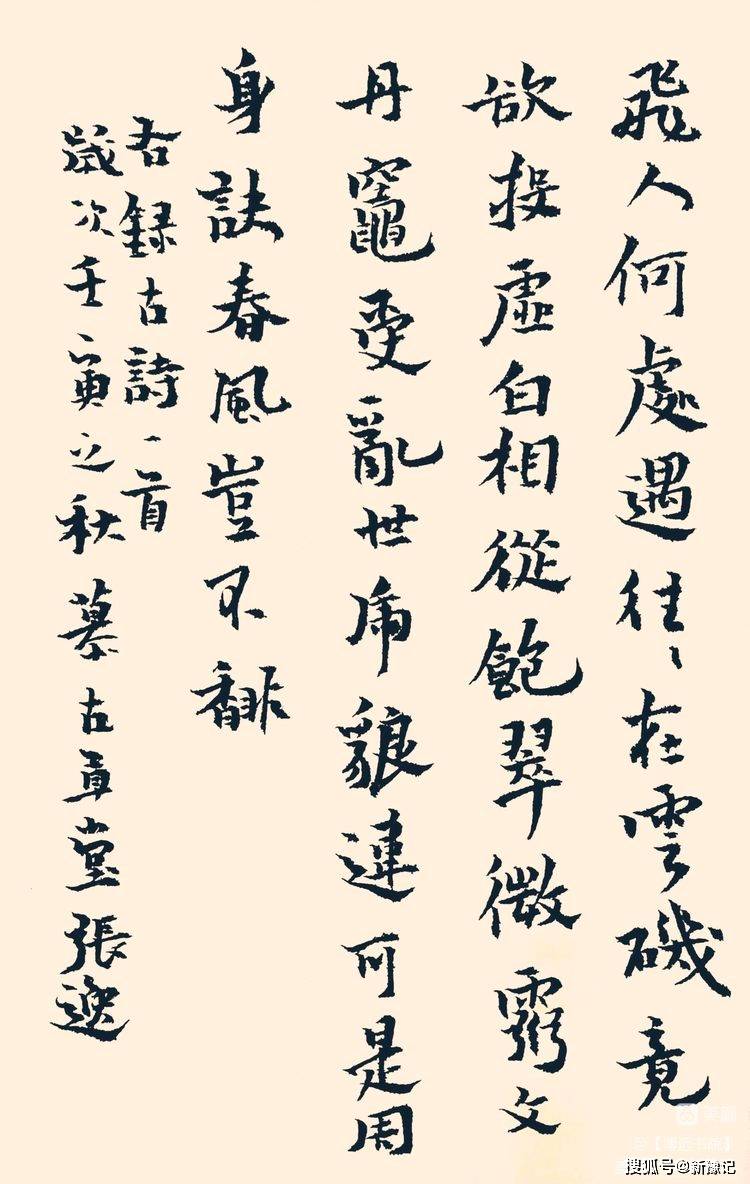 飛人何處遇往〻在雲磯竟
欲投虛白相從飽翠微文
丹竈受亂世虎狼違可是周
身訣春風豈不馡
右録古詩一首
歲次壬寅之秋慕古草堂張
搜狐号@新豫记